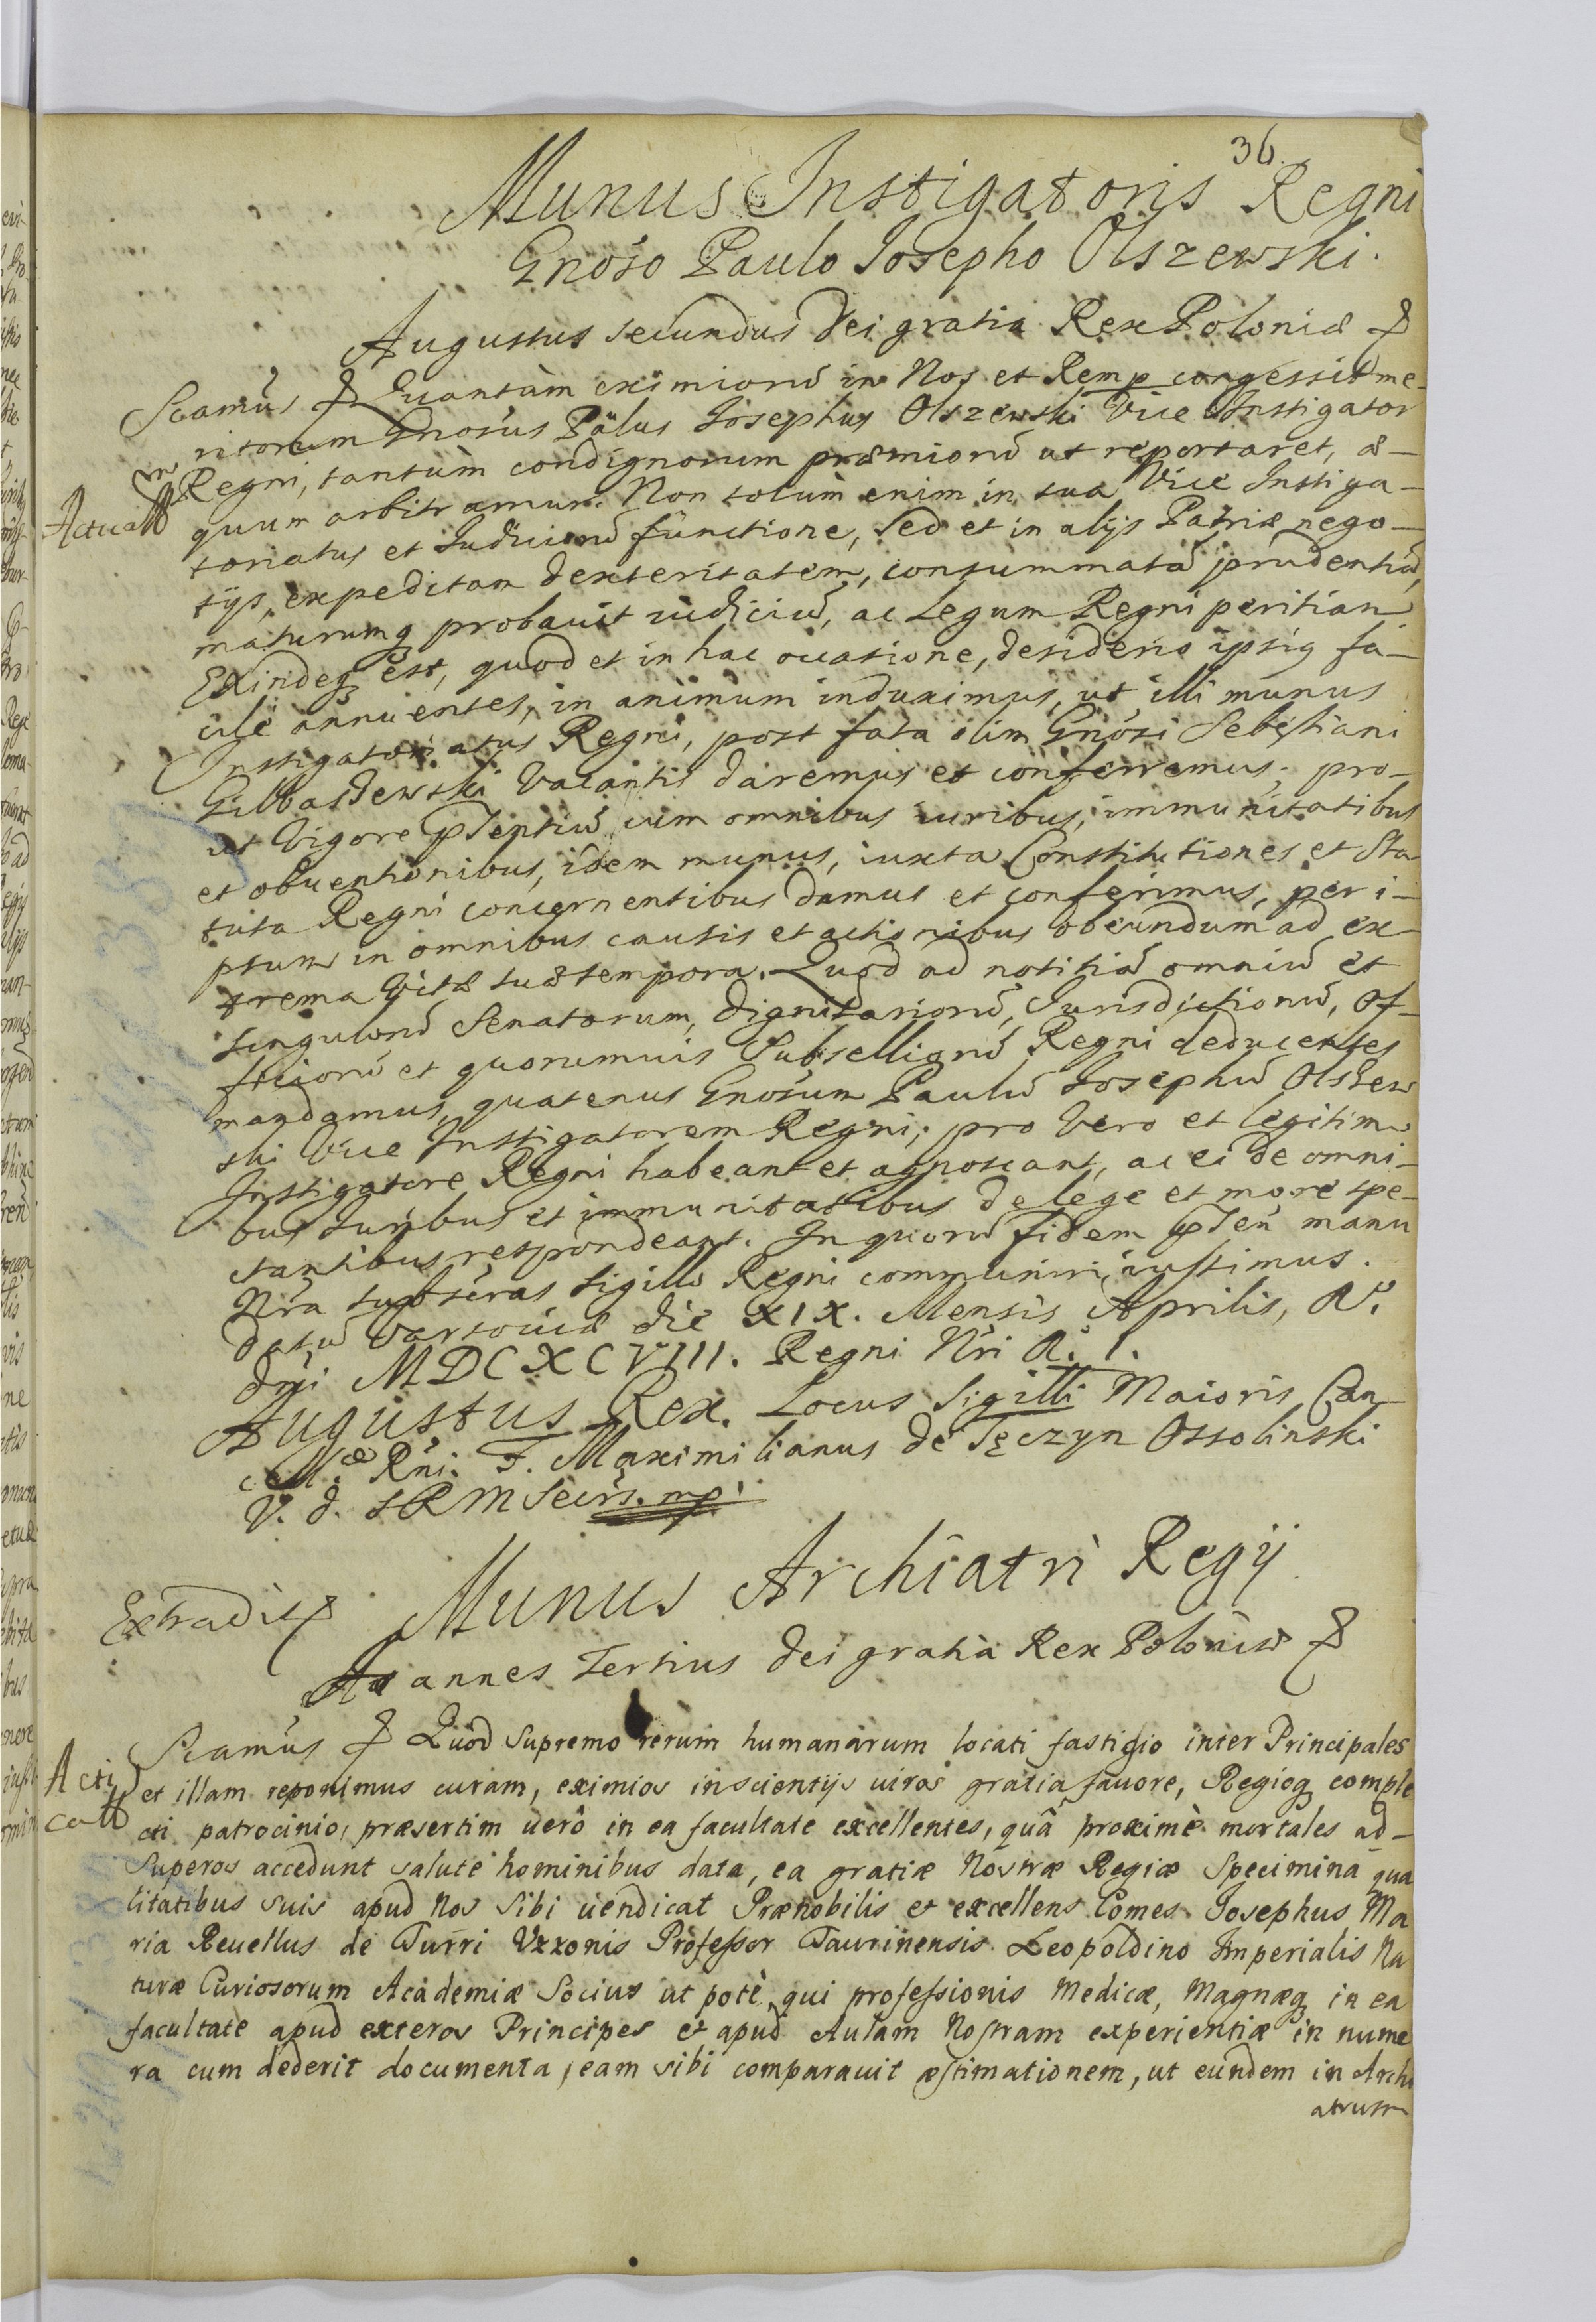 36.
Munus Instigatoris Regni
Gnoso Paulo Josepho Olszewski.
Augustus secundus Dei gratia Rex Poloniæ
Scamus Quantùm eximiorũ in Nos et Remp congessit me-
ritorum Gnosus Pãlus Josephus Olszewski Vice Instigator
Regni, tantùm condignorum præmiorũ ut reportaret, æ-
quum arbitramur. Non solùm enim in sua Vice Instiga-
toriatus et Judiciorũ functione, sed et in alijs Patriæ nego-
tijs, expeditam dexteritatem, consummatã prudentiã,
maturumq probavit iudiciũ, ac Legum Regni peritiam
Exindeq est, quod et in hac occasione, desiderio ipsiq fa-
cilè annuentes, in animum induximus, ut illi munus
Instigatoriatus Regni, post fata olim Gnosi Sebestiani
Gilbaszewski Vacantis daremus et conferremus; pro-
ut Vigore pñtiũ cum omnibus iuribus, immunitatibus
et obventionibus, idem munus, iuxta Constitutiones et Sta-
tuta Regni concernentibus damus et conferimus, per i-
psum in omnibus causis et actionibus obeundum ad ex-
trema Vitæ suæ tempora. Quod ad notitiã omniũ et
singulorũ Senatorum, Dignitariorũ, Jurisdictionũ, Of-
ficiorũ et quorumvis Subselliorũ Regni deducentes
mandamus, quatenus Gnosum Paulũ Josephũ Olszew
ski Vice Instigatorem Regni, pro Vero et legitimo
Instigatore Regni habeant et agnoscant, ac ei de omni-
bus Juribus et immunitatibus de lege et more spe-
ctantibus respondeant. In quorũ fidem pñten manu
Nra subscras sigillo Regni communiri iussimus.
Datũ Varsoviæ die XIX. Mensis Aprilis, A.
dni MDCXCVIII. Regni Nri A. I.
Augustus Rex. Locus Sigilli Maioris Can-
cellæ Rni. F. Maximilianus de Tęczyn Ossolinski
V. d. SRM Secrs. mp.
Actual
Extradit
Munus Archiatri Regij
Joannes Tertius Dei gratia Rex Poloniæ
Scamus Quod Supremo rerum humanarum locati fastigio inter Principales
et illam reponimus curam, eximios in scientijs uiros gratia favore, Regioq comple
cti patrocinio, præsertim uerô in ea facultate excellentes, quâ proximè mortales ad-
Superos accedunt salute hominibus data, ea gratiæ Nostræ Regiæ Specimina qua
litatibus suis apud Nos sibi uendicat Prænobilis et excellens Comes Josephus Ma
ria Reuellus de Turri Vxxonis Professor Taurinensis Leopoldino Imperialis Na
turæ Curiosorum Academiæ Socius ut potè, qui professionis Medicæ, Magnæq in ea
facultate apud exteros Principes et apud Aulam Nostram experientiæ in nume
ra cum dederit documenta, eam sibi comparauit æstimationem, ut eundem in Archi
atrum